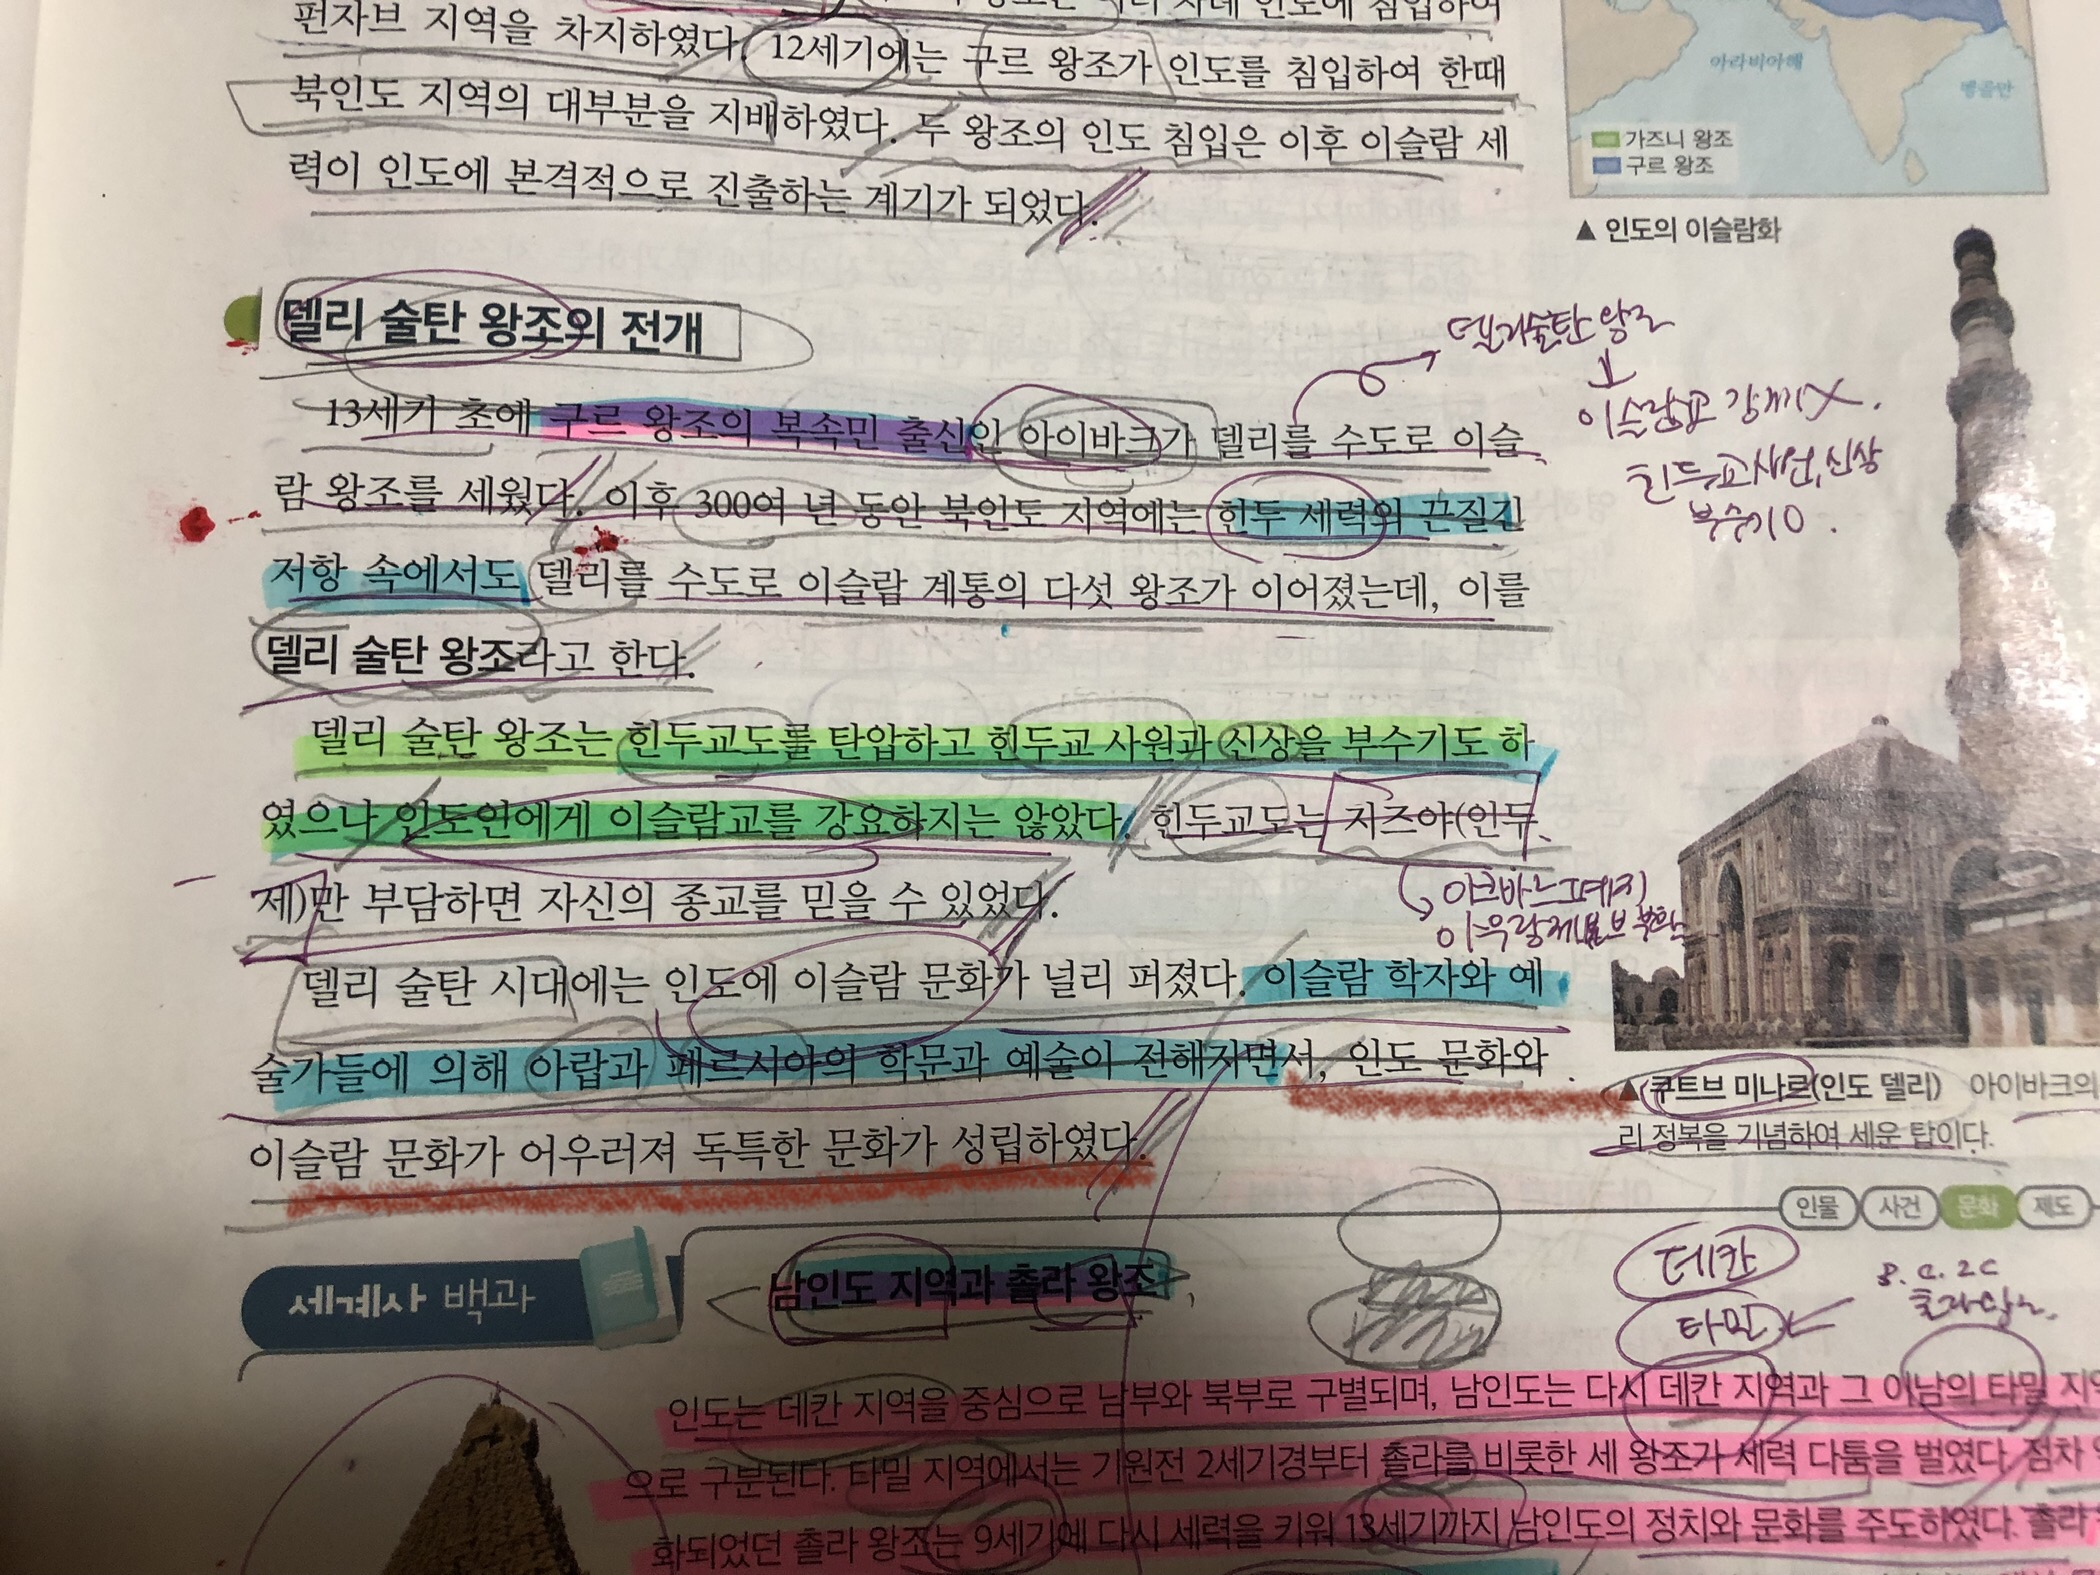 인도에 침입하여
펀자브 지역을 차지하였다. 12세기에는 구르 왕조가 인도를 침입하여 한때
북인도 지역의 대부분을 지배하였다. 두 왕조의 인도 침입은 이후 이슬람 세
력이 인도에 본격적으로 진출하는 계기가 되었다.
아라비아해
벵골만
가즈니 왕조
구르 왕조
▲ 인도의 이슬람화
델리 술탄 왕조의 전개
13세기 초에 구르 왕조의 복속민 출신인 아이바크가 델리를 수도로 이슬
람 왕조를 세웠다. 이후 300여 년 동안 북인도 지역에는 힌두 세력의 끈질긴
저항 속에서도 델리를 수도로 이슬람 계통의 다섯 왕조가 이어졌는데, 이를
델리 술탄 왕조라고 한다.
델리술탄 왕조
이슬람교 강제 X.
힌두교사원, 신상
부수기 O.
델리 술탄 왕조는 힌두교도를 탄압하고 힌두교 사원과 신상을 부수기도 하
였으나 인도인에게 이슬람교를 강요하지는 않았다. 힌두교도는 지즈야(인두
제)만 부담하면 자신의 종교를 믿을 수 있었다.
아크바르 폐지
아우랑제브 부활
델리 술탄 시대에는 인도에 이슬람 문화가 널리 퍼졌다. 이슬람 학자와 예
술가들에 의해 아랍과 페르시아의 학문과 예술이 전해지면서, 인도 문화와
이슬람 문화가 어우러져 독특한 문화가 성립하였다.
▲ 쿠트브 미나르(인도 델리) 아이바크의
리 정복을 기념하여 세운 탑이다.
인물 사건 문화 제도
세계사 백과
남인도 지역과 촐라 왕조
데칸
타밀
B.C. 2C
인도는 데칸 지역을 중심으로 남부와 북부로 구별되며, 남인도는 다시 데칸 지역과 그 이남의 타밀 지역
으로 구분된다. 타밀 지역에서는 기원전 2세기경부터 촐라를 비롯한 세 왕조가 세력 다툼을 벌였다. 점차
화되었던 촐라 왕조는 9세기에 다시 세력을 키워 13세기까지 남인도의 정치와 문화를 주도하였다. 촐라